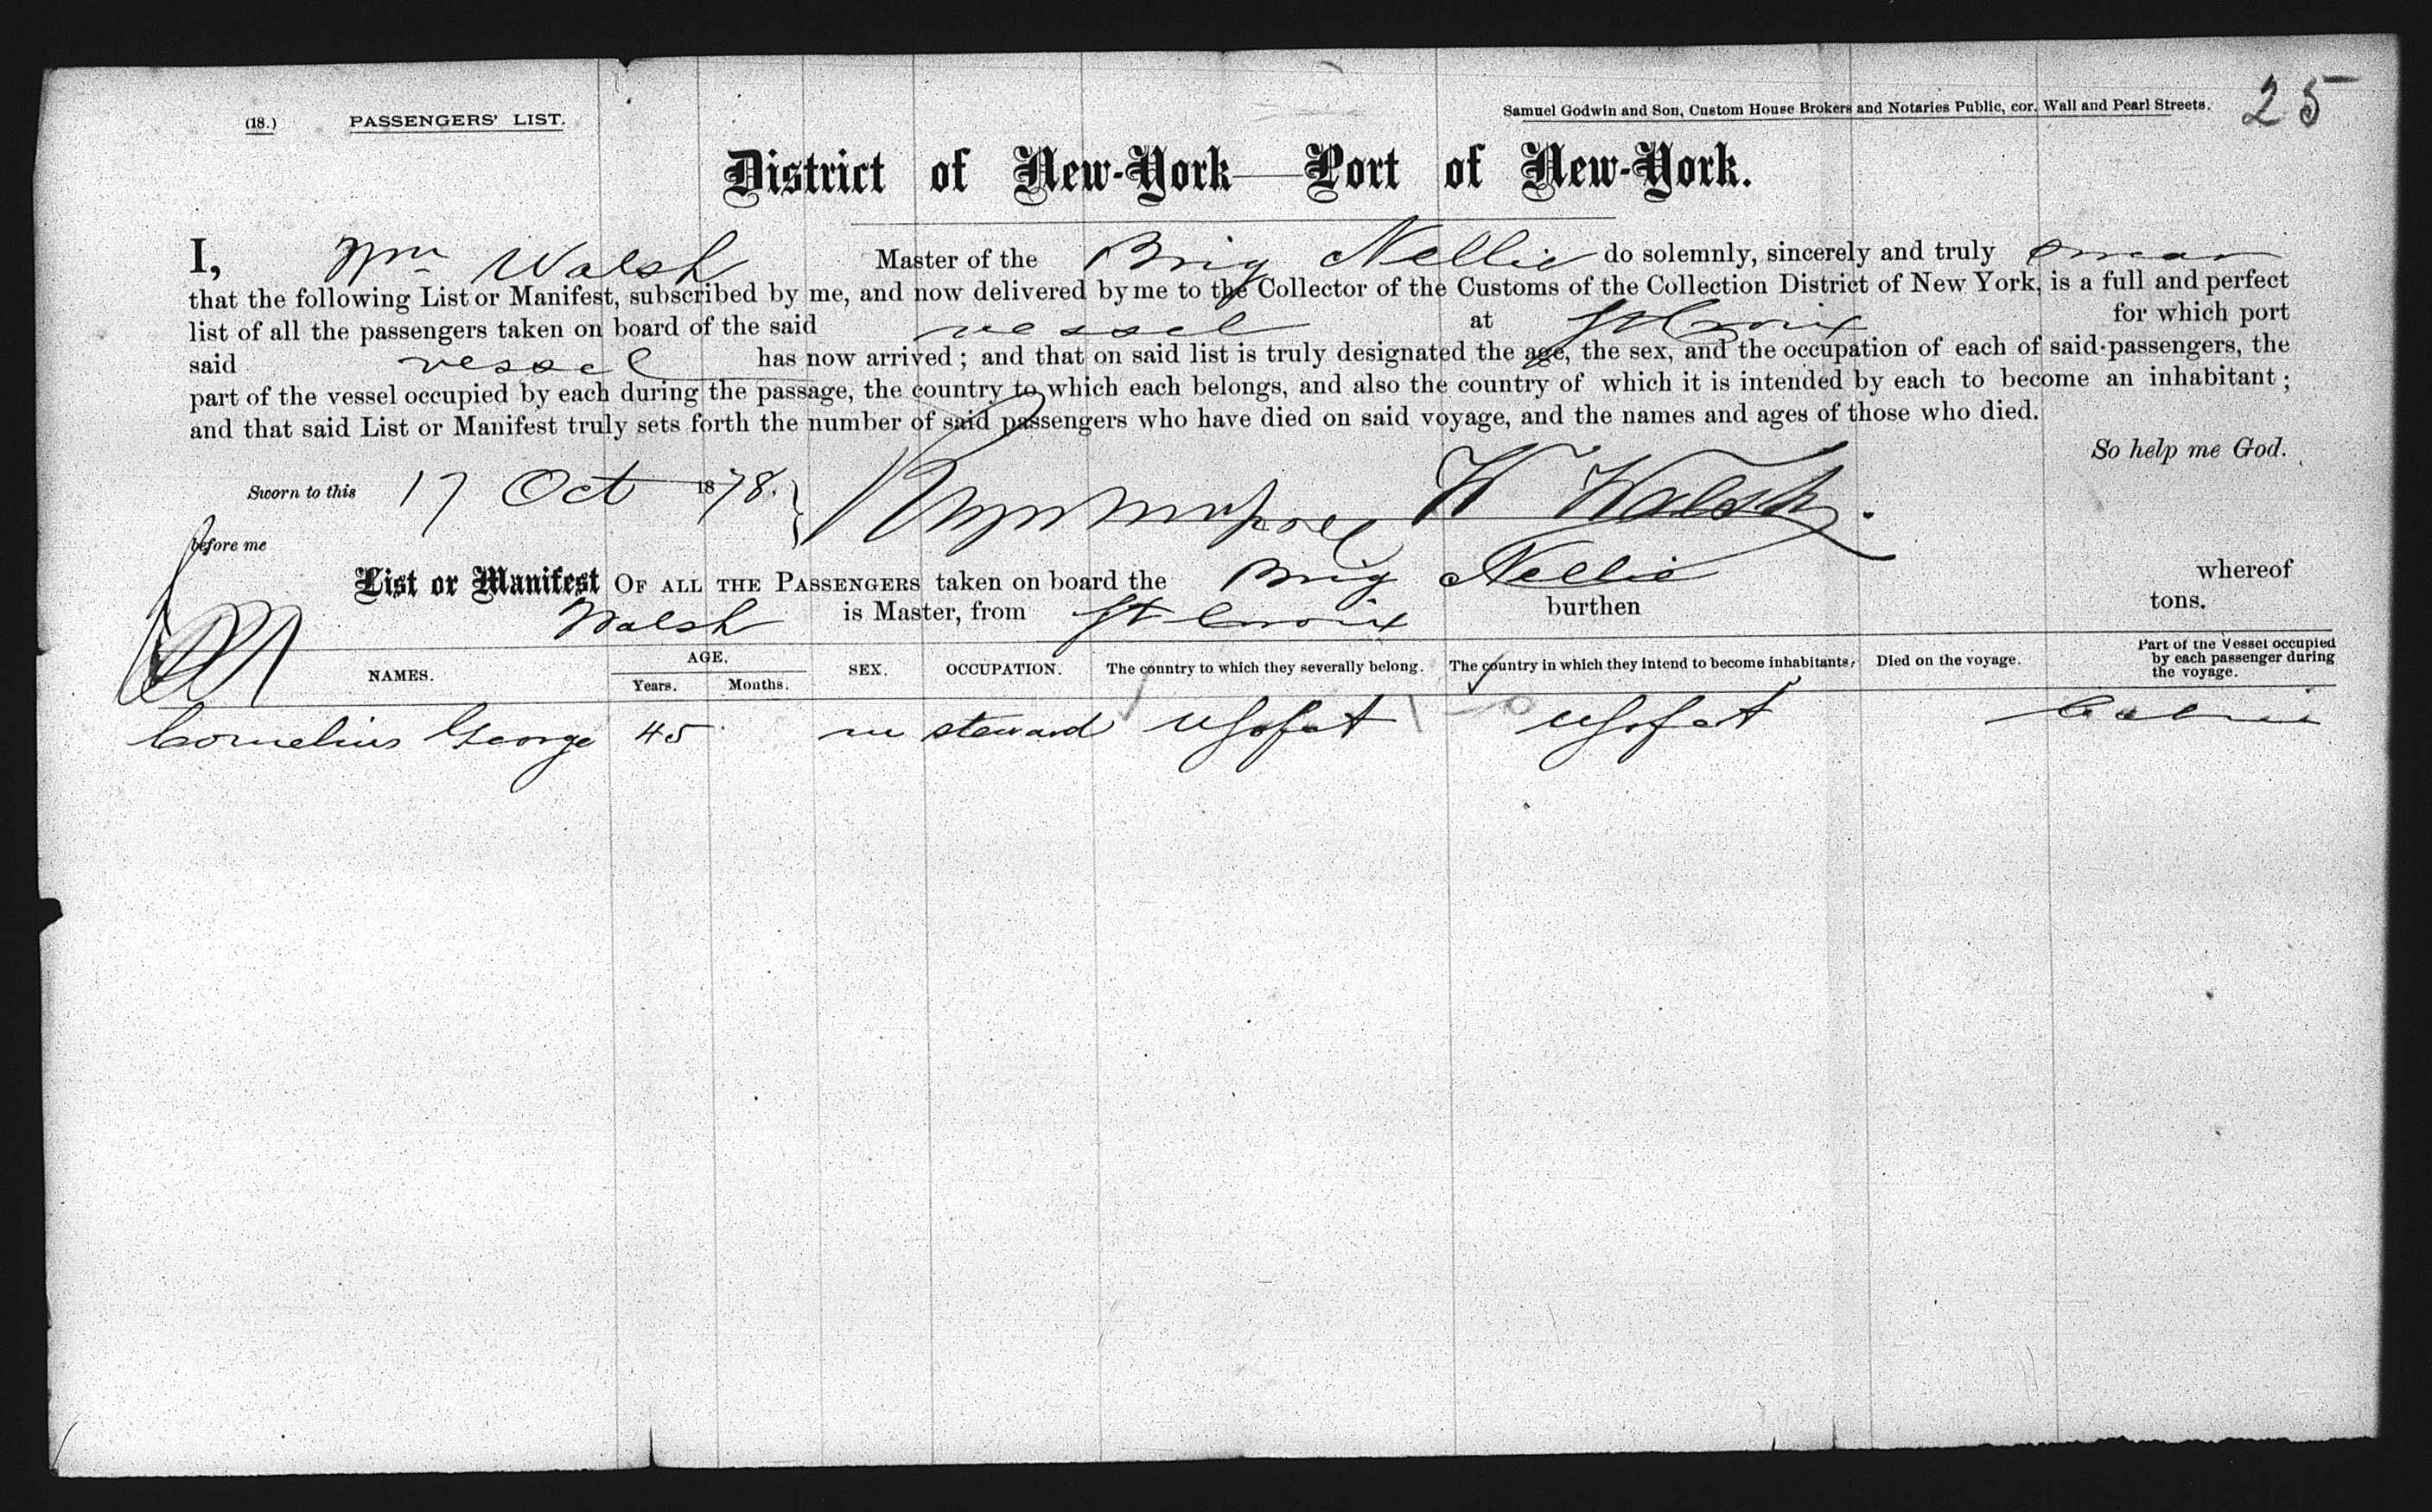 (18.) PASSENGERS' LIST. Samuel Godwin and Son, Custom House Brokers and Notaries Public, cor. Wall and Pearl Streets. 25
District of New-York—Port of New-York.
I, Wm Walsh Master of the Brig Nellie do solemnly, sincerely and truly swear
that the following List or Manifest, subscribed by me, and now delivered by me to the Collector of the Customs of the Collection District of New York, is a full and perfect
list of all the passengers taken on board of the said vessel at St Croix for which port
said vessel has now arrived; and that on said list is truly designated the age, the sex, and the occupation of each of said passengers, the
part of the vessel occupied by each during the passage, the country to which each belongs, and also the country of which it is intended by each to become an inhabitant;
and that said List or Manifest truly sets forth the number of said passengers who have died on said voyage, and the names and ages of those who died.
So help me God.
Sworn to this 17 Oct 1878. W Walsh.
before me
List or Manifest OF ALL THE PASSENGERS taken on board the Brig Nellie whereof
Walsh is Master, from St Croix burthen tons.
NAMES. AGE. Years. Months. SEX. OCCUPATION. The country to which they severally belong. The country in which they intend to become inhabitants. Died on the voyage. Part of the Vessel occupied by each passenger during the voyage.
Cornelius George 45 m steward Cabin